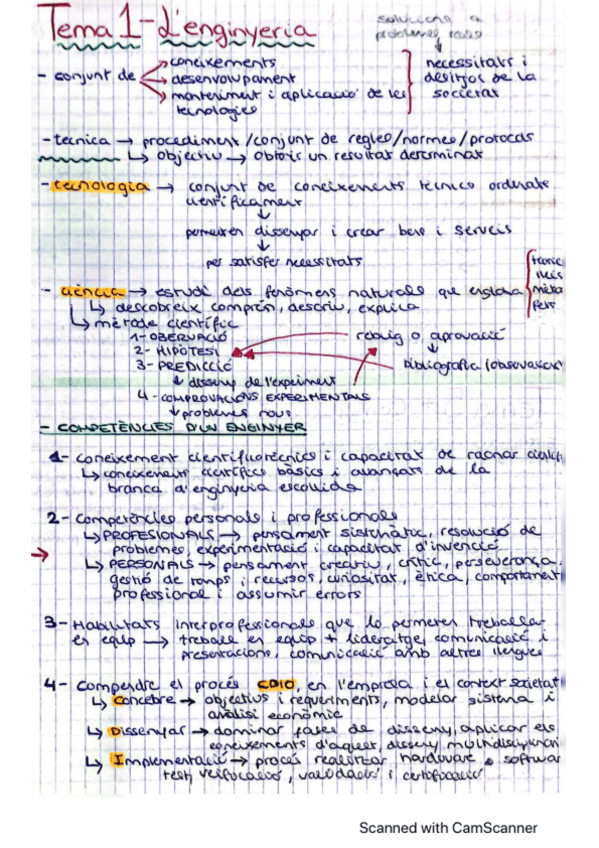 Tema 1 - L'enginyeria
solucions a
problemes reals
- conjunt de
coneixements
desenvolupament
manteniment i aplicació de les
tecnologies
necessitats i
desitjos de la
societat
- tècnica → procediment / conjunt de regles/normes/protocols
↳ objectiu → obtenir un resultat determinat
- tecnologia → conjunt de coneixements tècnics ordenats
científicament
↓
permeten dissenyar i crear bens i serveis
↓
per satisfer necessitats
- ciència → estudi dels fenòmens naturals que engloba
↳ descobreix comprèn, descriu, explica
↳ mètode científic
1- OBERVACIÓ
2- HIPÒTESI
3- PREDICCIÓ
↓ disseny de l'experiment
4 - COMPROVACIONS EXPERIMENTALS
↓ problemes nous
rebuig o aprovació
↓
bibliografia (observació)
- COMPETÈNCIES D'UN ENGINYER
1- coneixement cientificotècnics i capacitat de raonar
↳ coneixements científics bàsics i avançats de la
branca d'enginyeria escollida
2- Competències personals i professionals
↳ PROFESIONALS → pensament sistemàtic, resolució de
problemes, experimentació i capacitat d'invenció
↳ PERSONALS → pensament creatiu, crític, perseverança,
gestió de temps i recursos, curiositat, ètica, comportament
professional i assumir errors
3- Habilitats interprofessionals que lo permeten treballar
en equip → treball en equip + lideratge, comunicació i
presentacions, comunicació amb altres llengues
4- Comprendre el procés CDIO, en l'empresa i el context societat
↳ Concebre → objectius i requeriments, modelar sistema i
anàlisi econòmic
↳ Dissenyar → dominar fases de disseny, aplicar els
coneixements d'aquet, disseny
↳ Implementació → procés realitzar hardware software
test, verificació, validació i certificació
Scanned with CamScanner